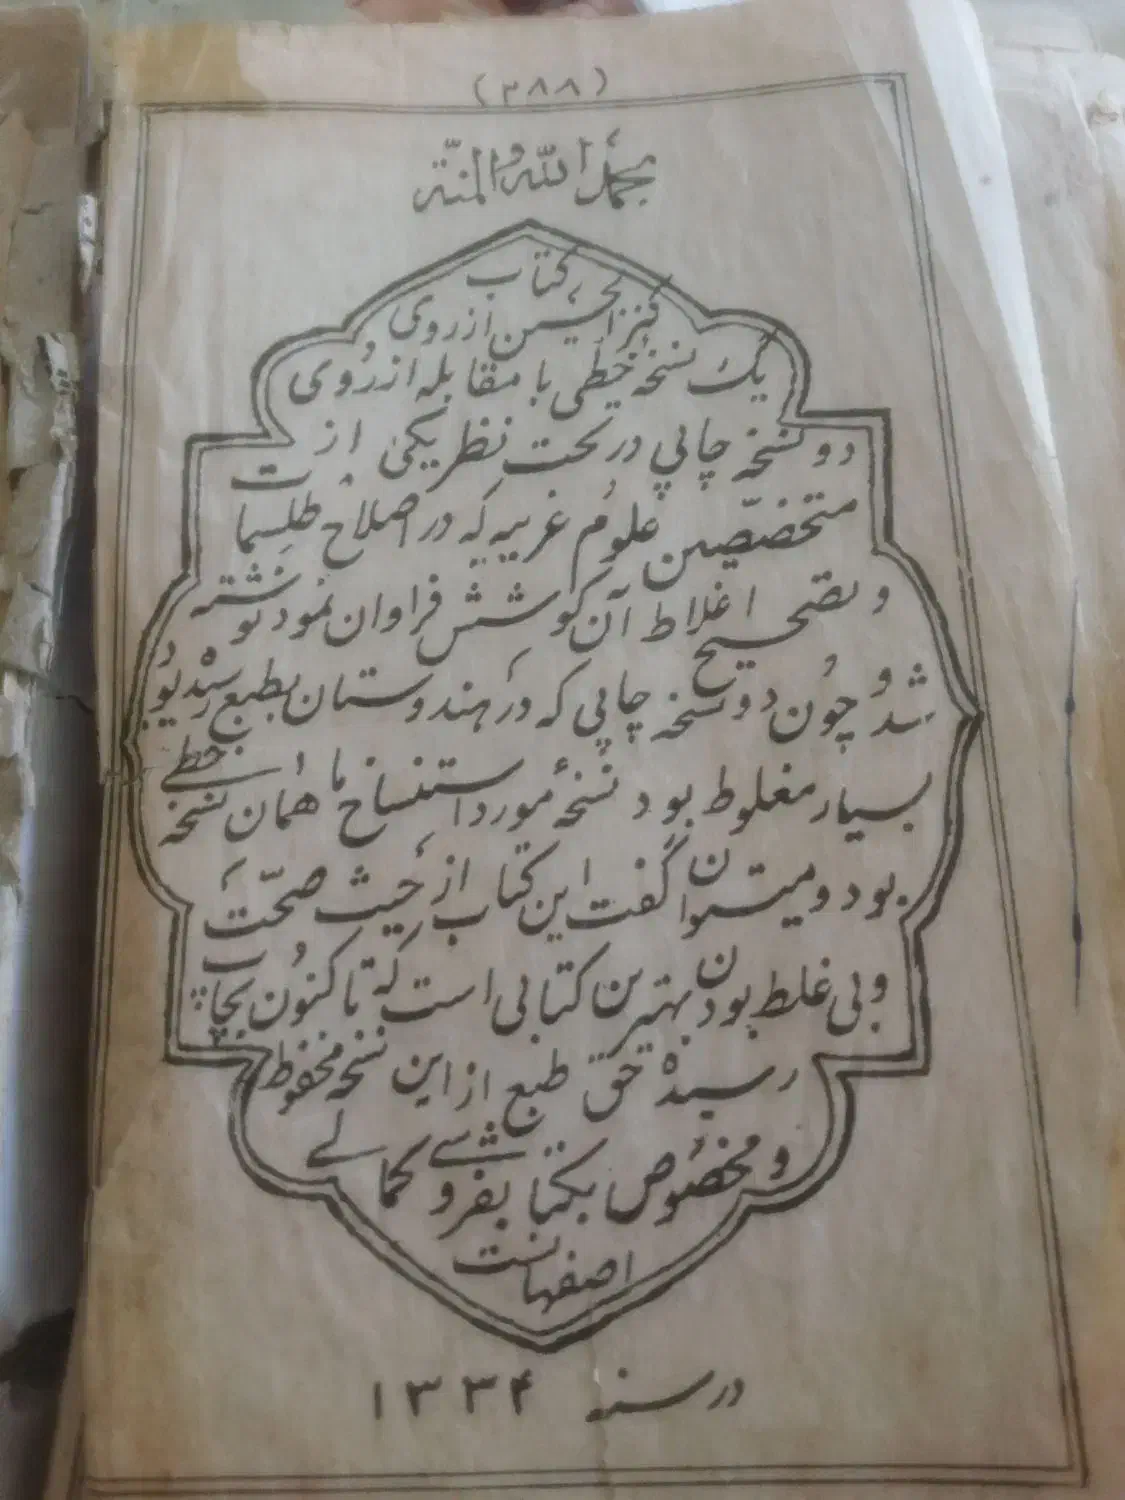 (۳۸۸)
بحمد الله والمنّة
کتاب
کنز الحسین از روی
یک نسخه خطی با مقابله از روی
دو نسخه چاپی در تحت نظر یکی از
متخصّصین علوم غریبه که در اصلاح طلسمات
و تصحیح اغلاط آن کوشش فراوان نمود نوشته
شد و چون دو نسخه چاپی که در هندوستان بطبع رسیده بود
بسیار مغلوط بود نسخهٔ مورد استنساخ ما همان نسخه خطی
بود و میتوان گفت این کتاب از حیث صحّت
و بی غلط بودن بهترین کتابی است که تا کنون بچاپ
رسیده حق طبع از این نسخه محفوظ
و مخصوص بکتابفروشی کمالی
اصفهانست
در سنه ۱۳۳۴